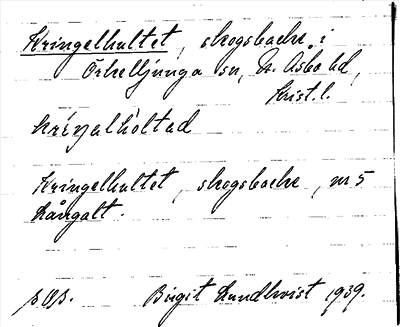 Kringelhultet, skogsbacke i
Örkelljunga sn, N. Åsbo hd,
Krist. l.
kríŋalhòltad
Kringelhultet, skogsbacke, nr 5
Långalt.
Birgit Lundkvist 1939.